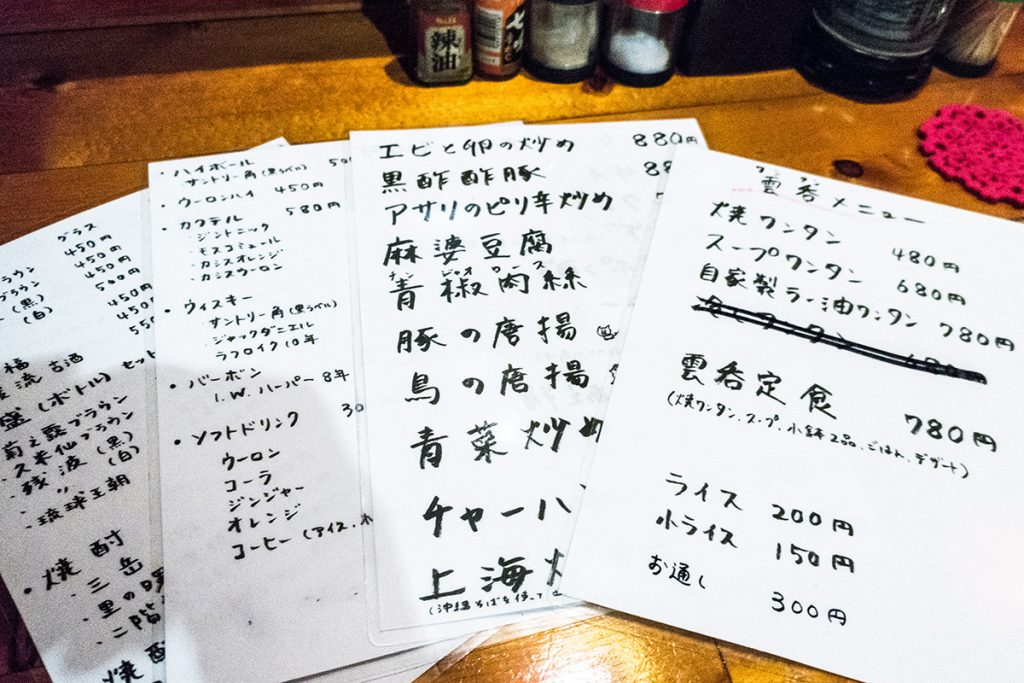 辣油
グラス
450円
450円
450円
500円
(黒) 450円
(白) 450円
古酒
(ボトル) セット
菊之露ブラウン
・久米仙ブラウン
・残波 (黒)
・〃 (白)
・琉球王朝
・焼酎
・三岳
・里の曙
・二階
・ハイボール
サントリー角(黒ラベル)
・ウーロンハイ 450円
・カクテル 580円
・ジントニック
・モスコミュール
・カシスオレンジ
・カシスウーロン
・ウィスキー
・サントリー角(黒ラベル)
・ジャックダニエル
・ラフロイク10年
・バーボン
I.W.ハーパー8年
・ソフトドリンク
ウーロン
コーラ
ジンジャー
オレンジ
コーヒー(アイス、ホ
エビと卵の炒め 880円
黒酢酢豚
アサリのピリ辛炒め
麻婆豆腐
チンジャオロース
青椒肉絲
豚の唐揚
鳥の唐揚
青菜炒め
チャーハ
上海
(沖縄そばを使って
ワンタン
雲呑メニュー
焼ワンタン 480円
スープワンタン 680円
自家製ラー油ワンタン 780円
雲呑定食 780円
(焼ワンタン、スープ、小鉢2品、ごはん、デザート)
ライス 200円
小ライス 150円
お通し 300円